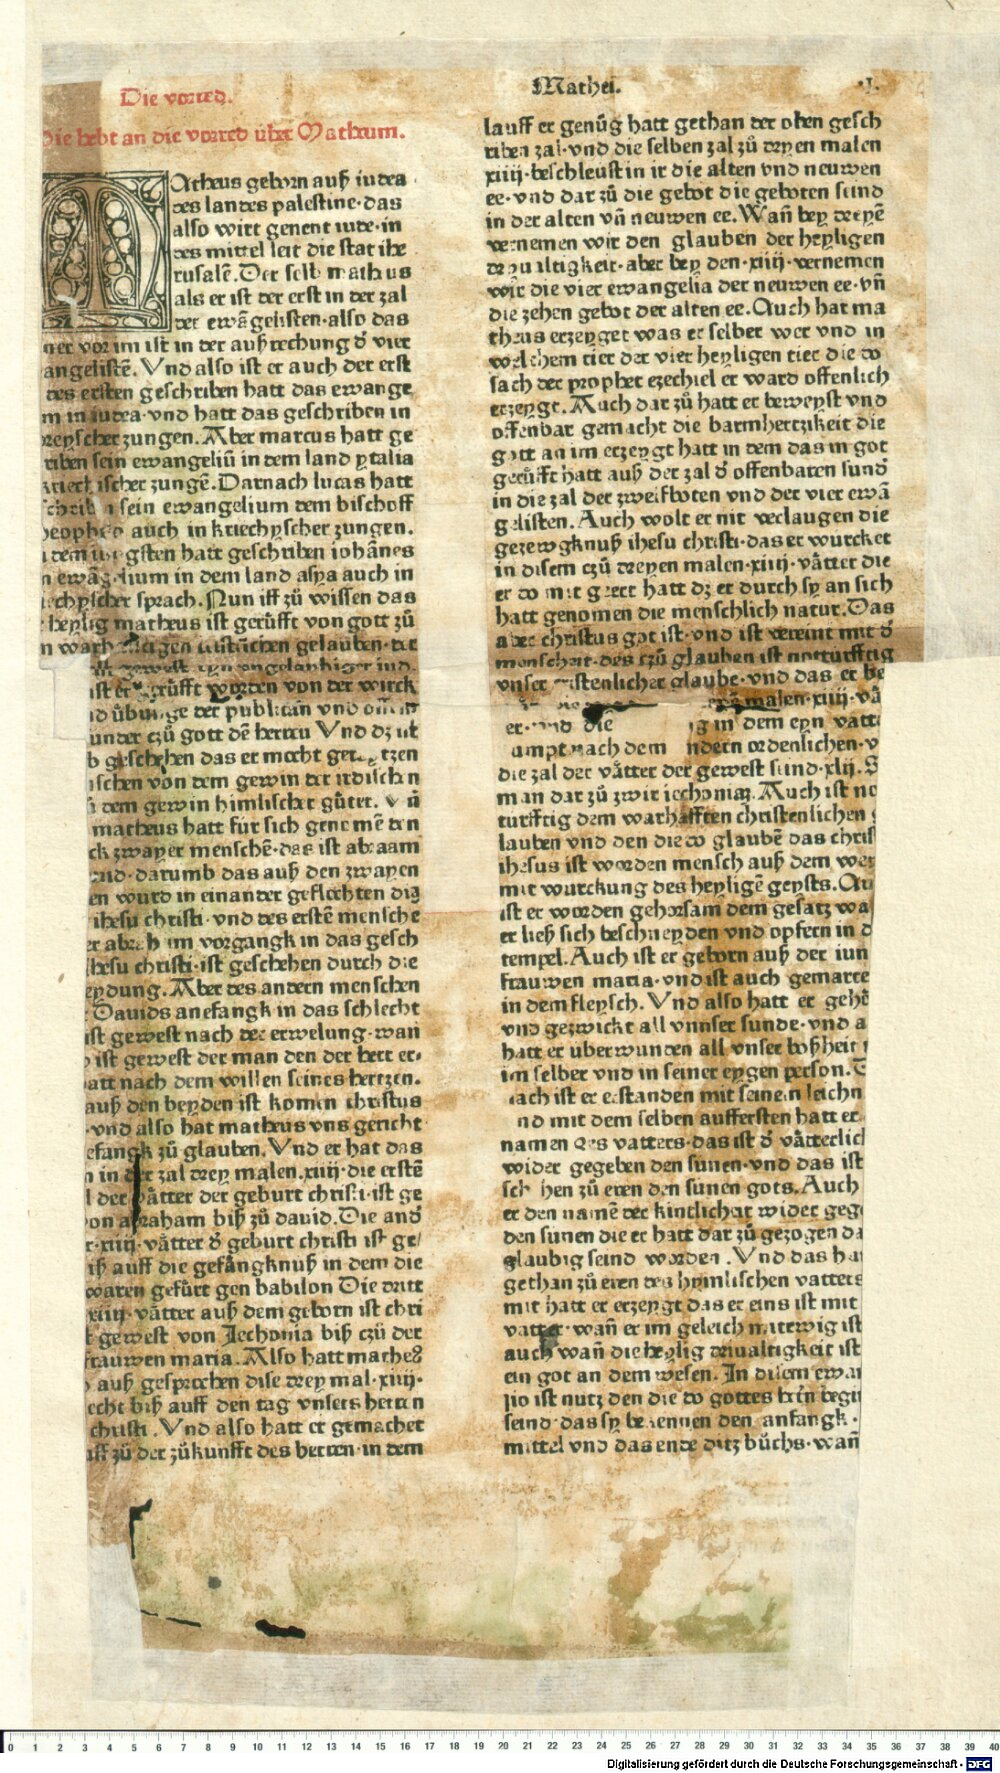 Die vorred.
Mathei.
·I·
Die hebt an die vorred über Matheum.
Matheus geborn auß iudea
des landes palestine·das
also wirt genent iude·in
des mittel leit die stat ihe
rusalē. Der selb matheus
als er ist der erst in der zal
der ewāgelisten·also das
ner vor im ist in der außrechung d̉ vier
angelistē. Vnd also ist er auch der erst
des ersten geschriben hatt das ewange
m in iudea·vnd hatt das geschriben in
reyscher zungen. Aber marcus hatt ge
riben sein ewangeliū in dem land ytalia
kriechischer zungē. Darnach lucas hatt
schriben sein ewangelium dem bischoff
heophelo auch in kriechyscher zungen.
dem iungsten hatt geschriben iohānes
n ewāgelium in dem land asya auch in
iechyscher sprach. Nun iſt zů wissen das
heylig matheus ist gerüfft von gott zů
n warhafftigen cristlichen gelauben·der
gewest eyn ongelaubiger iud·
ist er gerüfft worden von der wirck
id übunge der publican vnd
under czů gott dē herren Vnd dz ist
b geschehen das er mocht
ischen von dem gewin der irdischen
dem gewin himlischer gůter.
matheus hatt für sich genomē den
ck zwayer menschē·das ist abraam
uid·darumb das auß den zwayen
en wurd in einander geflochten die
ihesu christi·vnd des erstē mensche
er abraham vorgangk in das gesch
ihesu christi·ist geschehen durch die
eydung. Aber des andern menschen
Dauids anefangk in das schlecht
ist gewest nach der erwelung·wan
ist gewest der man den der herr er⸗
att nach dem willen seines hertzen.
auß den beyden ist komen christus
·vnd also hat matheus vns gericht
efangk zů glauben. Vnd er hat das
n in der zal drey malen·xiiij·die erstē
l der vätter der geburt christi·ist ge
on abraham biß zů dauid. Die and̉
r·xiiij·vätter d̉ geburt christi ist ge/
iß auff die gefängknuß in dem die
waren gefürt gen babilon Die dritt
xiiij·vätter auß dem geborn ist chri
t gewest von Jechonia biß czů der
frauwen maria. Also hatt matheꝰ
auß gesprochen dise drey mal·xiiij·
echt biß auff den tag vnsers herren
christi. Vnd also hatt er gemachet
uff zů der zůkunfft des herren·in dem
lauff er genůg hatt gethan der oben gesch
riben zal·vnd die selben zal zů dryen malen
xiiij·beschleust in ir die alten vnd neuwen
ee·vnd dar zů die gebot die geboten sind
in der alten vn̄ neuwen ee. Wan̄ bey dreyē
vernemen wir den glauben der heyligen
driualtigkeit·aber bey den·xiiij·vernemen
wir die vier ewangelia der neuwen ee·vn̄
die zehen gebot der alten ee. Auch hat ma
theus erzeyget was er selber wer vnd in
welchem tier der vier heyligen tier die do
sach der prophet ezechiel er ward offenlich
erzeygt. Auch dar zů hatt er beweyst vnd
offenbar gemacht die barmhertzikeit die
gott an im erzeygt hatt in dem das in got
gerüfft hatt auß der zal d̉ offenbaren sund̉
in die zal der zwelfboten vnd der vier ewā
gelisten. Auch wolt er nit verlaugen die
gezewgknuß ihesu christi·das er wurcket
in disem czů dreyen malen·xiiij·vätter die
er do mit geert hatt dz er durch sy an sich
hatt genomen die menschlich natur. Das
aber christus got ist·vnd ist vereint mit d̉
menscheit·des czů glauben ist notturfftig
vnser cristenlicher glaube·vnd das er be
malen·xiiij·vä
er·vnd die in dem eyn vätt
ampt nach dem andern ordenlichen·v
die zal der vätter der gewest sind·xlij. S
man dar zů zwir iechoniaz. Auch ist no
türfftig dem warhafften christenlichen g
lauben vnd den die do glaubē das chris
ihesus ist worden mensch auß dem wer
mit wurckung des heyligē geysts. Au
ist er worden gehorsam dem gesatz wa
er ließ sich beschneyden vnd opfern in d
tempel. Auch ist er geborn auß der iun
frauwen maria·vnd ist auch gemarte
in dem fleysch. Vnd also hatt er gehē
vnd gezwickt all vnnser sunde·vnd a
hatt er überwunden all vnser boßheit
im selber vnd in seiner eygen person. D
nach ist er erstanden mit seinem leichn
nd mit dem selben auffersten hatt er
namen des vatters·das ist d̉ vätterlich
wider gegeben den sünen·vnd das ist
sche hen zů eren den sünen gots. Auch
er den namē der kintlicheit wider gege
den sünen die er hatt dar zů gezogen da
glaubig seind worden. Vnd das hat
gethan zů eren des hymlischen vatters
mit hatt er erzeygt das er eins ist mit
vatter·wan̄ er im geleich mitewig ist
auch wan̄ die heylig driualtigkeit ist
ein got an dem wesen. In disem ewan
lio ist nutz den die do gottes begir
seind·das sy bekennen den anfangk·
mittel vnd das ende ditz bůchs·wan̄
0 1 2 3 4 5 6 7 8 9 10 11 12 13 14 15 16 17 18 19 20 21 22 23 24 25 26 27 28 29 30 31 32 33 34 35 36 37 38 39 40
Digitalisierung gefördert durch die Deutsche Forschungsgemeinschaft - DFG